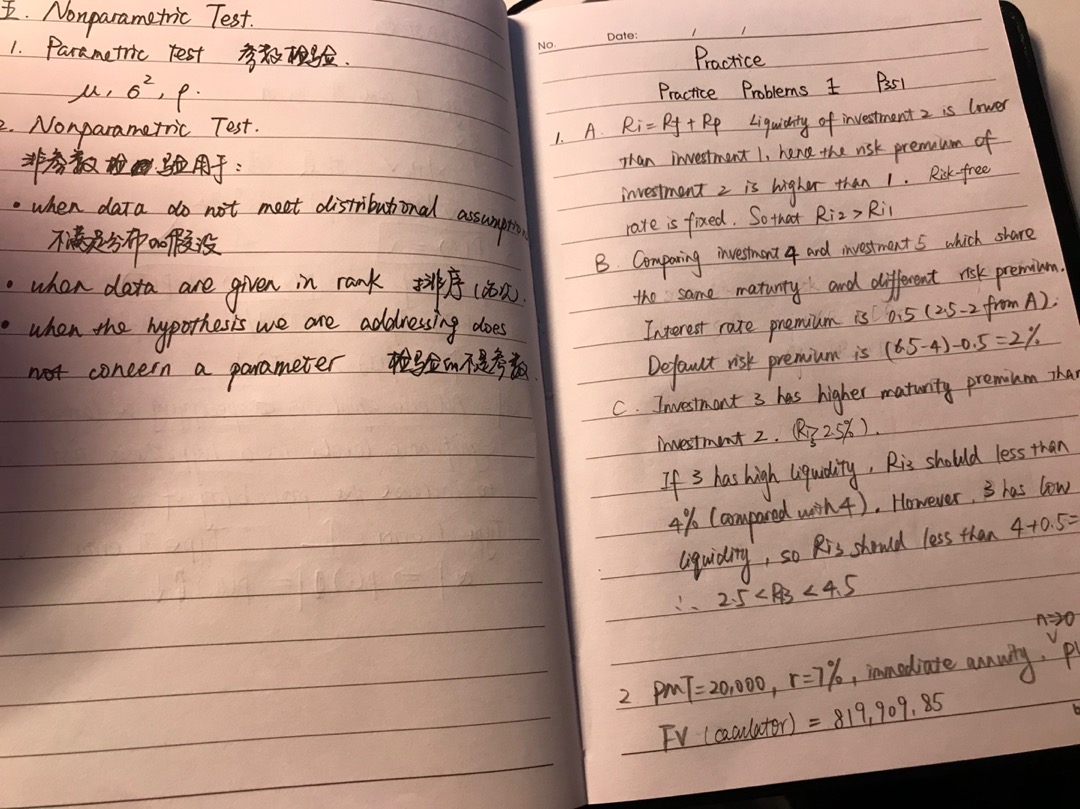 五. Nonparametric Test.
1. Parametric test 参数检验.
μ, σ², ρ.
2. Nonparametric Test.
非参数检验用于:
• when data do not meet distributional assumption
不满足分布的假设
• when data are given in rank 排序
• when the hypothesis we are addressing does
not concern a parameter 检验的不是参数.
No. Date: / /
Practice
Practice Problems I P351
1. A. Ri = Rf + Rp Liquidity of investment 2 is lower
than investment 1, hence the risk premium of
investment 2 is higher than 1. Risk-free
rate is fixed. So that Ri2 > Ri1
B. Comparing investment 4 and investment 5 which share
the same maturity and different risk premium.
Interest rate premium is 0.5 (2.5-2 from A).
Default risk premium is (6.5-4)-0.5=2%
C. Investment 3 has higher maturity premium than
investment 2. (Ri3 > 2.5%).
If 3 has high liquidity, Ri3 should less than
4% (compared with 4). However, 3 has low
liquidity, so Ri3 should less than 4+0.5=
∴ 2.5 < Ri3 < 4.5
n=20
2 PMT=20,000, r=7%, immediate annuity,
FV (caculator) = 819,909.85